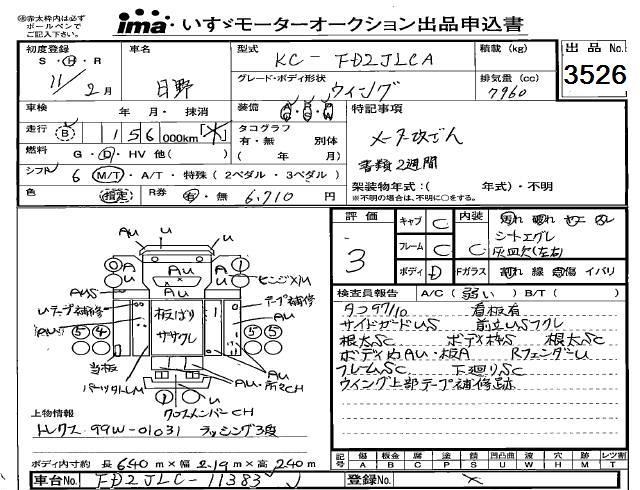 ㊟赤太枠内は必ず
ボールペンで
ご記入下さい。
ima いすゞモーターオークション出品申込書
初度登録 車名 型式 KC-FD2JLCA 積載 (kg) 出品No.
S・H・R 11/2月 日野 グレード・ボディ形状 ウィング 排気量 (cc) 7960 3526
車検 年 月・抹消 装備 特記事項
走行 B 156 000km タコグラフ 有・無 別体 メータ改ざん
燃料 G・D・HV 他( ) ( 年 月) 書類2週間
シフト 6 M/T・A/T・特殊 (2ペダル・3ペダル) 架装物年式:( 年式)・不明
色 指定 R券 有・無 6,710 円 ※不明の場合は、不明に○をする。
評価 キャブ C 内装 汚れ 破れ
3 フレーム C C シートエグレ
灰皿欠(左右)
ボディ D Fガラス 割れ 線 点傷 イバリ
検査員報告 A/C (弱い) B/T ( )
タコグラ/10 看板有
サイドガードUS 前立USフクレ
根太SC ボディ枠S 根太SC
ボディ内AU・板A RフェンダーU
フレームSC 下廻りSC
ウィング上部テープ補修跡
A U U
O A AU 1
AU U ヒンジX/M
AUS AU AU
Uテープ補修 テープ補修
AU 板ばり ササクレ AU
5 4 5 5
当板 AU
パーツタレM AU AU・所々C
1 U
クロスメンバーCH
上物情報
トレクス 99W-01031 ラッシング3段
ボディ内寸約 長 640 m×幅 2.19 m×高 240 m
記号 傷 A 板金 B 腐 C 塗 P 錆 S 凹凸曲 U 欠 W 穴 H 跡 M レツ割 T
車台No. FD2JLC-11383 登録No. ×